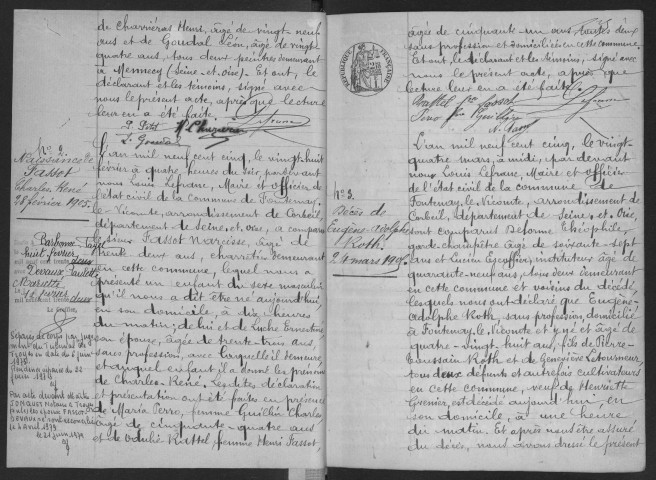 de Charriéras Henri, âgé de vingt-neuf
ans et de Goudal Léon, âgé de vingt-
quatre ans, tous deux peintres demeurant
à Mennecy (Seine-et-Oise). Et ont, le
déclarant et les témoins, signé avec
nous le présent acte, après que lecture
leur en a été faite.
P. Petit
Lefranc
L. Goudal
N° 2.
Naissance de
Fassot
Charles René
28 février 1905.
L'an mil neuf cent cinq, le vingt-huit
février à quatre heures du soir, par devant
nous Louis Lefranc, Maire et officier
de l'état civil de la commune de Fontenay-
le-Vicomte, arrondissement de Corbeil,
département de Seine-et-Oise, a comparu
le sieur Fassot Narcisse, âgé de
trente deux ans, charretier demeurant
en cette commune, lequel nous a
présenté un enfant du sexe masculin
qu'il nous a dit être né aujourd'hui,
en son domicile, à dix heures
du matin; de lui et de Luche Ernestine
son épouse, âgée de trente-trois ans,
sans profession, avec laquelle il demeure
et auquel enfant il a donné les prénoms
de Charles-René. Lesdites déclaration
et présentation ont été faites en présence
de Maria Perro, femme Guiché Charles
âgée de cinquante-quatre ans
et de Odulie Rattel, femme Henri Fassot,
Barbonne-Fayel
huit février
Devaux Paulette
Henriette
Le février
Le Greffier,
Séparés de corps par juge
ment du Tribunal de
Troyes en date du 5 juin
1974
juin 1974
Par acte devant Maître
FONQUET Notaire à Troyes
les époux FASSOT
DEVAUX se sont réconciliés
le 4 Avril 1979
le 21 juin 1979
RÉPUBLIQUE FRANÇAISE
âgée de cinquante un ans, toutes deux
sans profession et domiciliées en cette commune.
Et ont, le déclarant et les témoins, signé avec
nous le présent acte, après que
lecture leur en a été faite.
Rattel fe Fassot
Perro fe Guiché
Lefranc
N. Fassot
N° 3.
Décès de
Eugène-Adolphe
Roth.
24 mars 1905
L'an mil neuf cent cinq, le vingt-
quatre mars, à midi, par devant
nous Louis Lefranc, Maire et officier
de l'Etat civil de la commune de
Fontenay-le-Vicomte, arrondissement de
Corbeil, département de Seine-et-Oise,
sont comparus Deforme Théophile,
garde-champêtre âgé de soixante-sept
ans et Lucien instituteur âgé de
quarante-neuf ans, tous deux demeurant
en cette commune et voisins du décédé,
lesquels nous ont déclaré que Eugène-
Adolphe Roth, sans profession, domicilié
à Fontenay-le-Vicomte et y né et âgé de
quatre-vingt-huit ans, fils de Pierre-
Toussaint Roth et de Geneviève Letourneur,
tous deux défunts et autrefois cultivateurs
en cette commune, veuf de Henriette
Grenier, est décédé aujourd'hui, en
son domicile, à une heure
du matin. Et après nous être assuré
du décès, nous avons dressé le présent